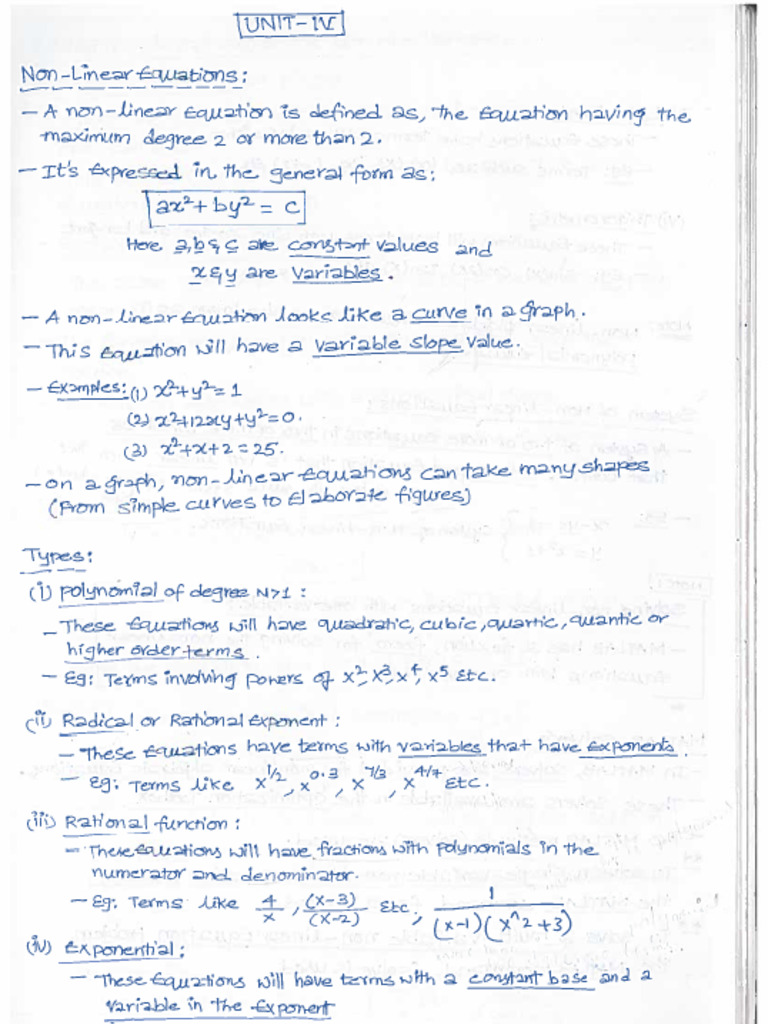 UNIT-IV
Non-Linear Equations:
- A non-linear Equation is defined as, the Equation having the
maximum degree 2 or more than 2.
- It's Expressed in the general form as:
ax² + by² = c
Here a,b & c are constant values and
x & y are variables.
- A non-linear Equation looks like a curve in a graph.
- This Equation will have a variable slope value.
- Examples: (1) x²+y²=1
(2) x²+12xy+y²=0.
(3) x²+x+2=25.
- on a graph, non-linear Equations can take many shapes
(From simple curves to Elaborate figures)
Types:
(i) polynomial of degree N>1 :
- These Equations will have quadratic, cubic, quartic, quantic or
higher order terms.
- Eg: Terms involving powers of x², x³, x⁴, x⁵, Etc.
(ii) Radical or Rational Exponent :
- These Equations have terms with variables that have Exponents.
- Eg: Terms like x^1/2, x^0.3, x^7/3, x^4/7 Etc.
(iii) Rational function :
- These Equations will have fractions with polynomials in the
numerator and denominator.
- Eg: Terms like 4/x, (x-3)/(x-2) Etc, 1/(x-1)(x^2+3)
(iv) Exponential :
- These Equations will have terms with a constant base and a
variable in the Exponent